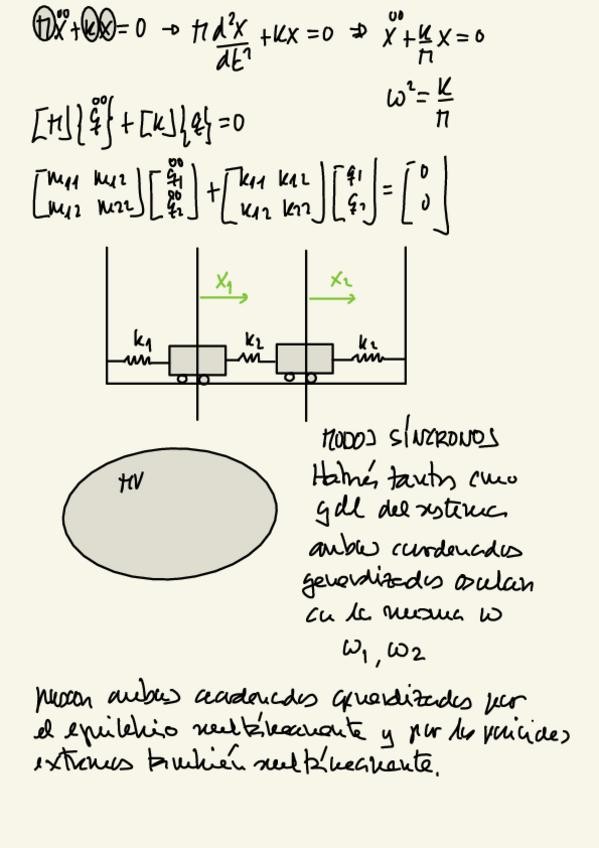 Mẍ + kx = 0 → M d²x/dt² + kx = 0 ⇒ ẍ + k/M x = 0
ω² = k/M
[M]{q̈} + [k]{q} = 0
[m11 m12 m12 m22][q̈1 q̈2] + [k11 k12 k12 k22][q1 q2] = [0 0]
x1 x2
k1 k2 k2
MV
MODOS SÍNCRONOS
Habrá tantos como
gdl del sistema
ambas coordenadas
generalizadas oscilan
con la misma ω
ω1, ω2
pasan ambas coordenadas generalizadas por
el equilibrio simultáneamente y por las posiciones
extremas también simultáneamente.